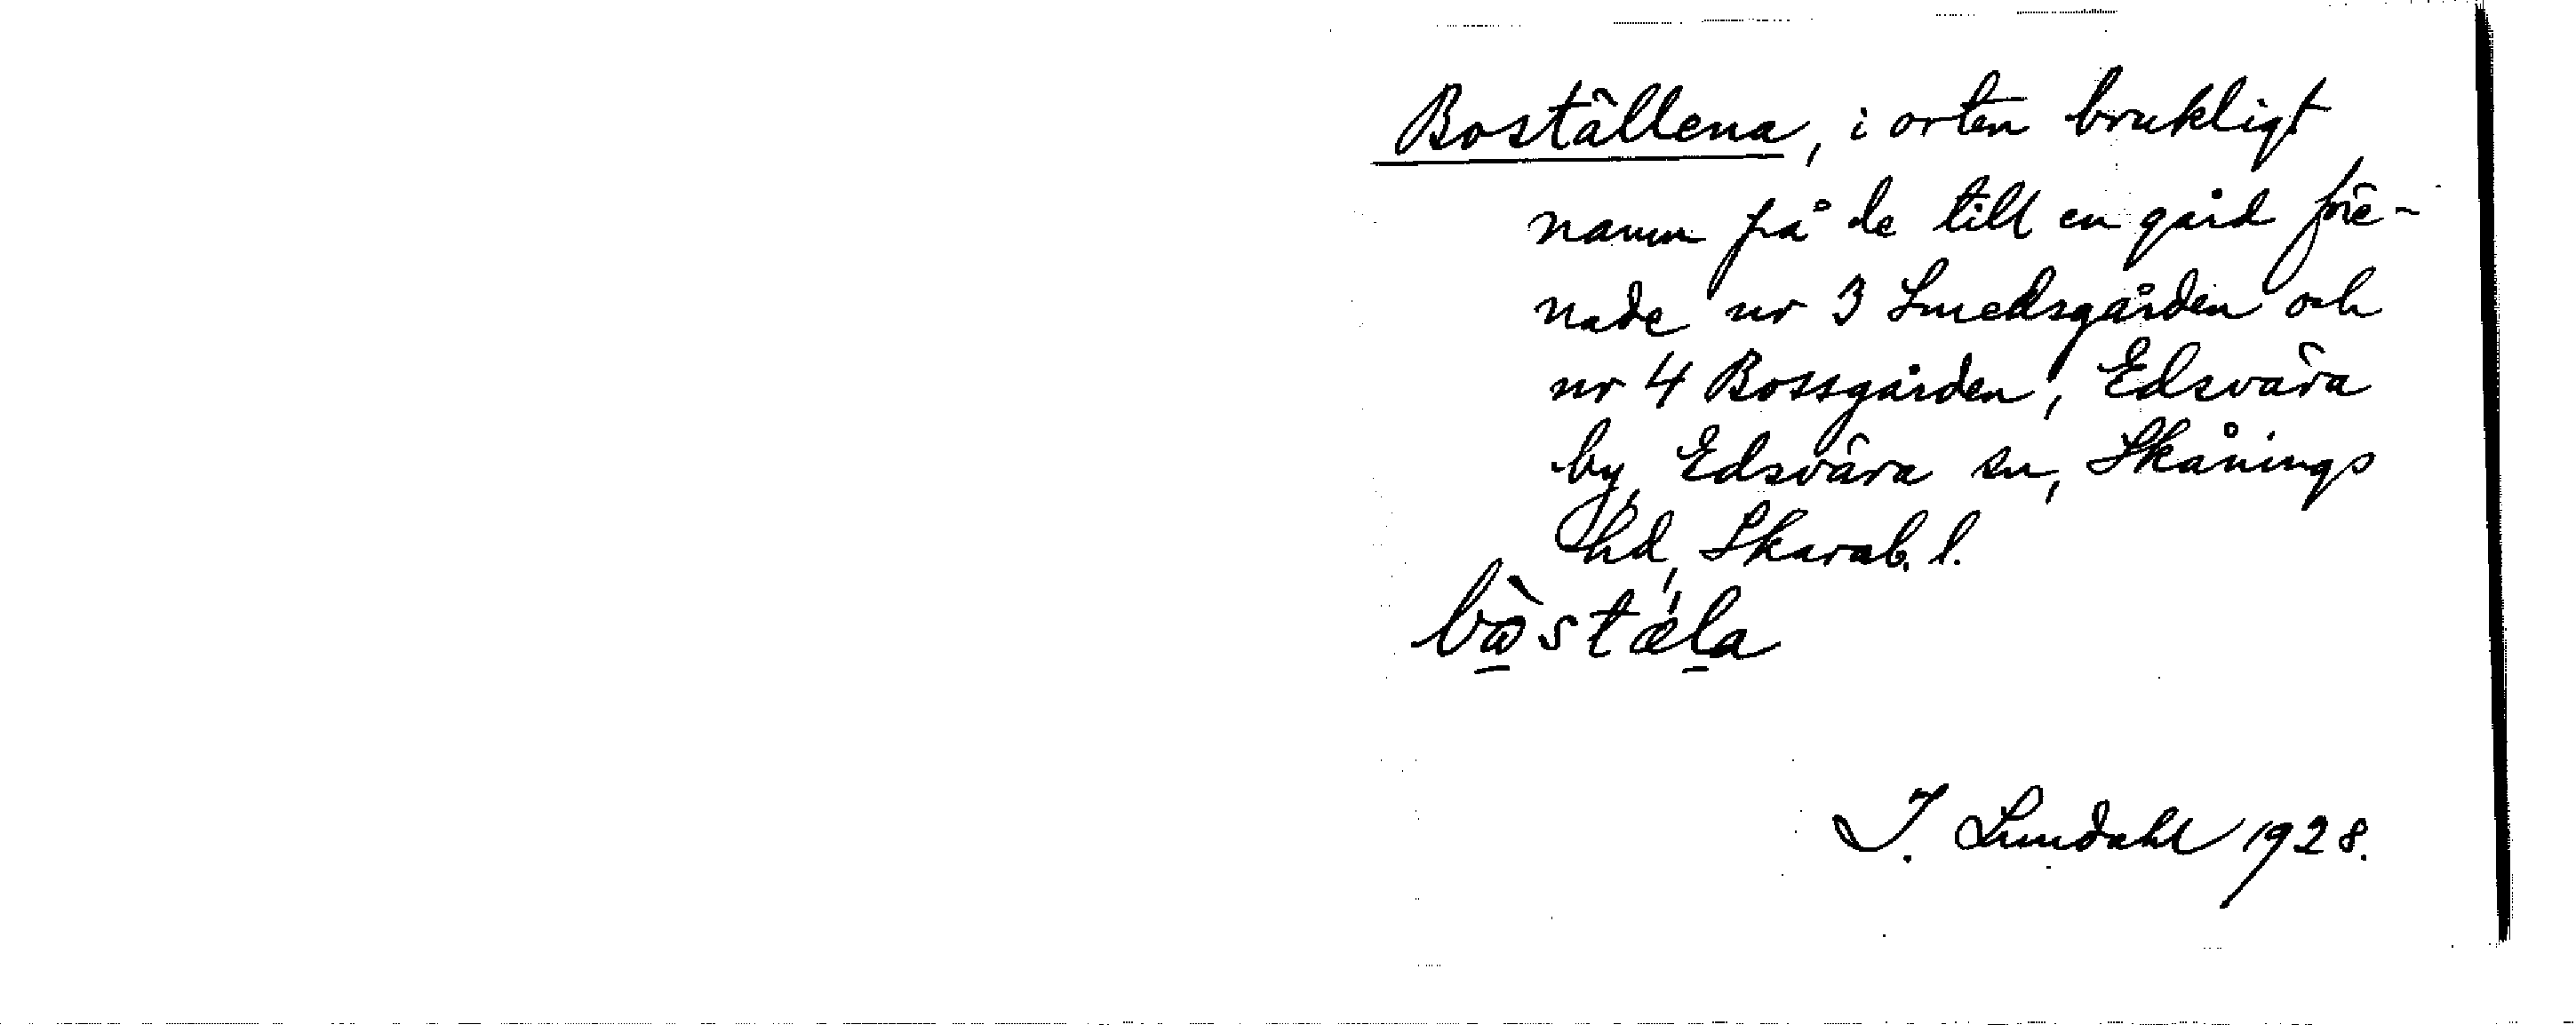 Boställena, i orten brukligt
namn på de till en gård före-
nade nr 3 Smedsgården och
nr 4 Bossgården, Edsvära
by, Edsvära sn, Skånings
hd, Skarab. l.
bωstæla
I. Lundahl 1928.